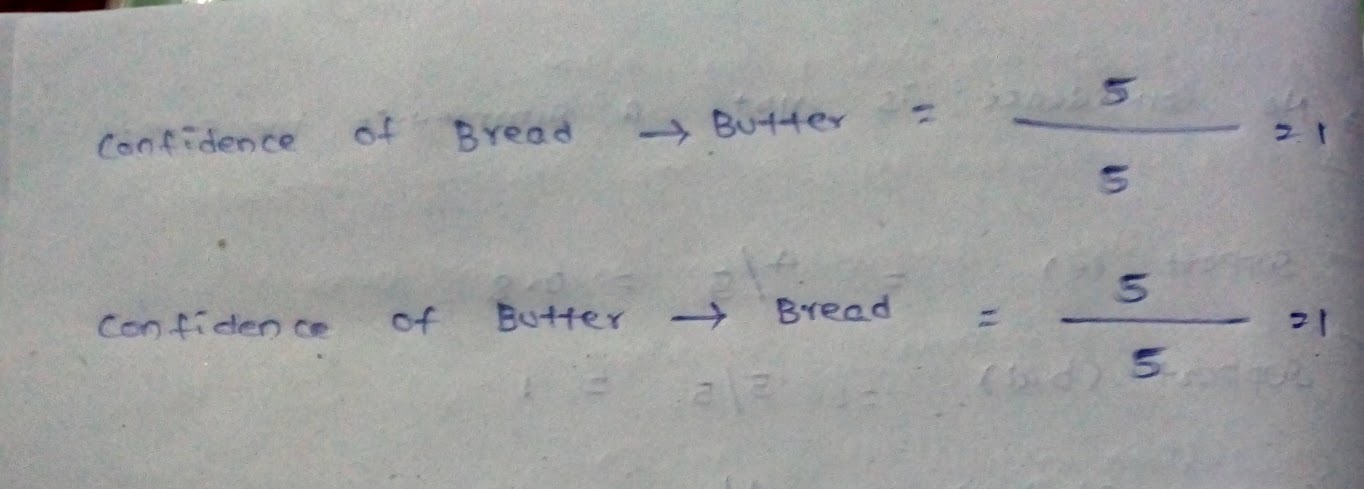 Confidence of Bread → Butter = 5/5 = 1
Confidence of Butter → Bread = 5/5 = 1